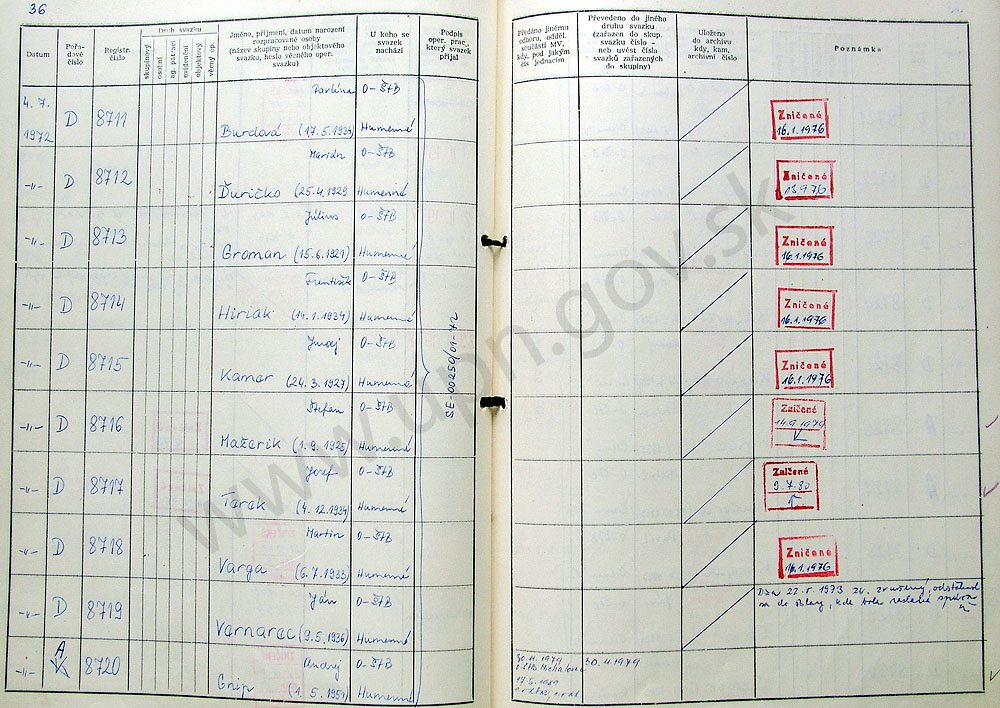 36
Datum
Pořa-
dové
číslo
Registr.
číslo
Druh svazku
skupinový
osobní
ag. pátrací
evidenční
objektový
věcný op.
Jméno, příjmení, datum narození
rozpracované osoby
(název skupiny nebo objektového
svazku, heslo věcného oper.
svazku)
U koho se
svazek
nachází
Podpis
oper. prac.,
který svazek
přijal
Předáno jinému
odboru, odděl.
součásti MV.
kdy, pod jakým
čís. jednacím
Převedeno do jiného
druhu svazku
(zařazen do skup.
svazku číslo -
neb uvést čísla
svazků zařazených
do skupiny)
Uloženo
do archivu
kdy, kam,
archivní číslo
Poznámka
4. 7.
1972
D 8711
Pavlína
Burdová (17. 5. 1934)
O-ŠtB
Humenné
Zničené
16.1.1976
-"- D 8712
Marián
Ďuričko (25.4.1929
O-ŠtB
Humenné
Zničené
-"- D 8713
Július
Groman (15.6.1921)
O-ŠtB
Humenné
Zničené
16.1.1976
-"- D 8714
František
Hiriak (14.1.1934)
O-ŠtB
Humenné
Zničené
16.1.1976
-"- D 8715
Juraj
Kamor (24.3.1927)
O-ŠtB
Humenné
Zničené
16.1.1976
-"- D 8716
Štefan
Mažerik (1.9.1925)
O-ŠtB
Humenné
Zničené
14.9.1979
-"- D 8717
Jozef
Torok (4.12.1934)
O-ŠtB
Humenné
Zničené
9.7.80
-"- D 8718
Martin
Varga (6.7.1933)
O-ŠtB
Humenné
Zničené
16.1.1976
-"- D 8719
Ján
Varnarec (9.5.1936)
O-ŠtB
Humenné
Dňa 22.5.1973 zv. zrušený, odsťahoval
sa do
-"- A 8720
Andrej
Gnip (1.5.1951)
O-ŠtB
Humenné
30.11.1979
30.11.1979
SE-00250/01-72
www.upn.gov.sk